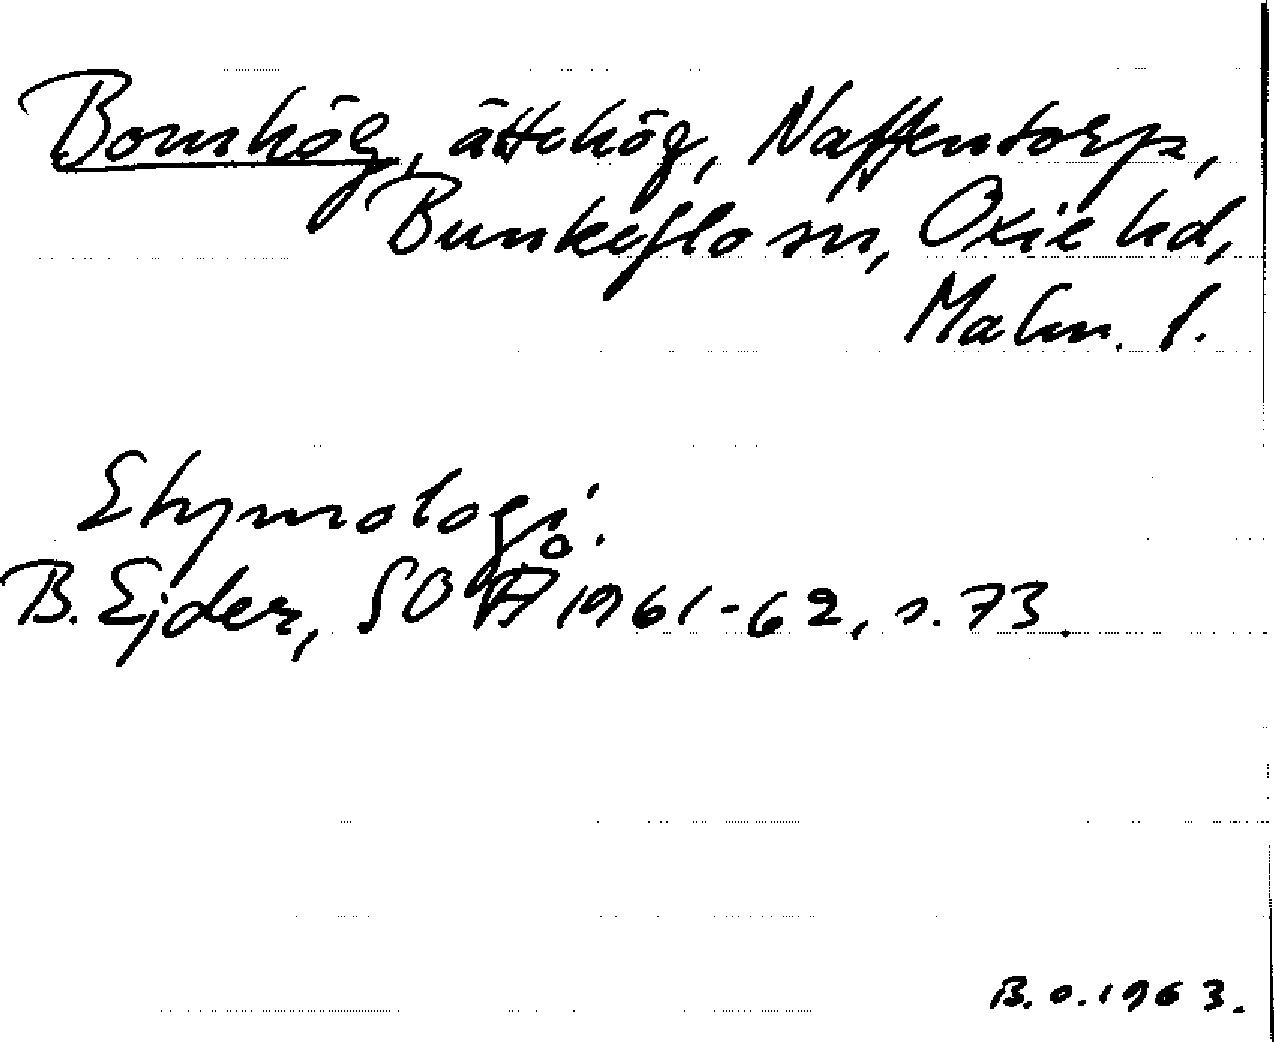 Bomhög, ättehög, Naffentorp,
Bunkeflo sn, Oxie hd,
Malm. l.
Etymologi.
B. Ejder, SOÅ 1961-62, s. 73.
B. O. 1963.